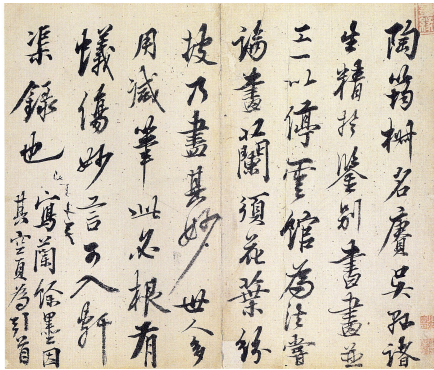 陶筠名賡吳江諸
生精於鑒別書畫並
工一以停雲館為法嘗
論畫蘭須花葉紛
披乃盡其妙世人多
用減筆此必根有
蟻傷妙言可入軒
渠錄也
寫蘭餘墨因
其空頁為引首